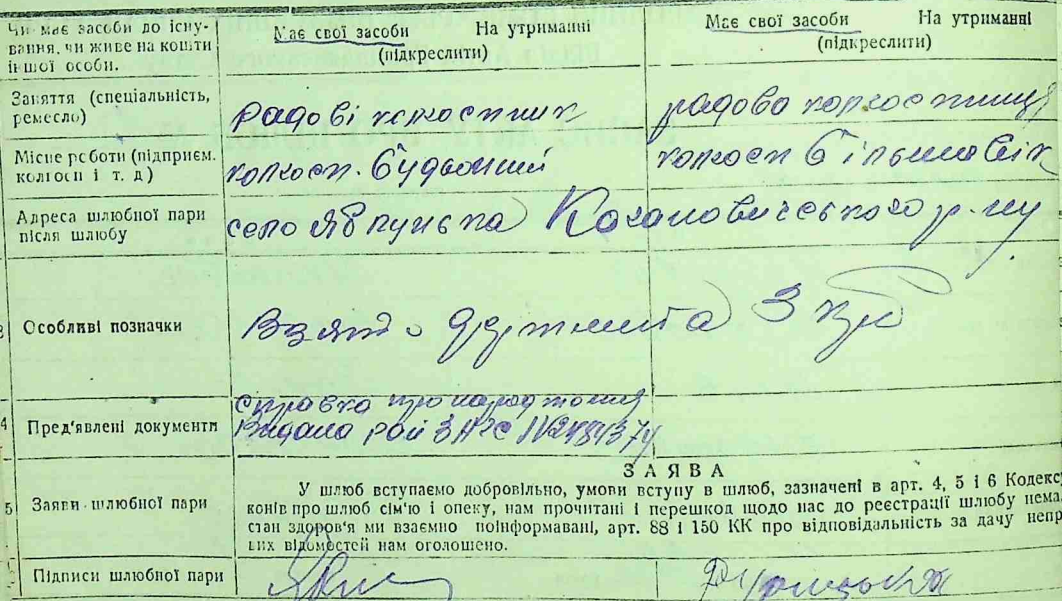 Чи має засоби до існування, чи живе на кошти іншої особи.
Має свої засоби На утриманні
(підкреслити)
Має свої засоби На утриманні
(підкреслити)
Заняття (спеціальність, ремесло)
радові колгостник
радова колгостниця
Місце роботи (підприєм. колгосп і т. д)
колгосп. Будьоний
колгосп Більшовік
Адреса шлюбної пари після шлюбу
село Явкунька Кагановическкого р-ну
Особливі позначки
Взято держмита 3 крб
4 Пред'явлені документи
справка про народження
Видана рай ЗАГС
5 Заяви шлюбної пари
ЗАЯВА
У шлюб вступаємо добровільно, умови вступу в шлюб, зазначені в арт. 4, 5 і 6 Кодекс
конів про шлюб сім'ю і опеку, нам прочитані і перешкод щодо нас до реєстрації шлюбу нема
стан здоров'я ми взаємно поінформавані, арт. 88 і 150 КК про відповідальність за дачу непр
них відомостей нам оголошено.
Підписи шлюбної пари